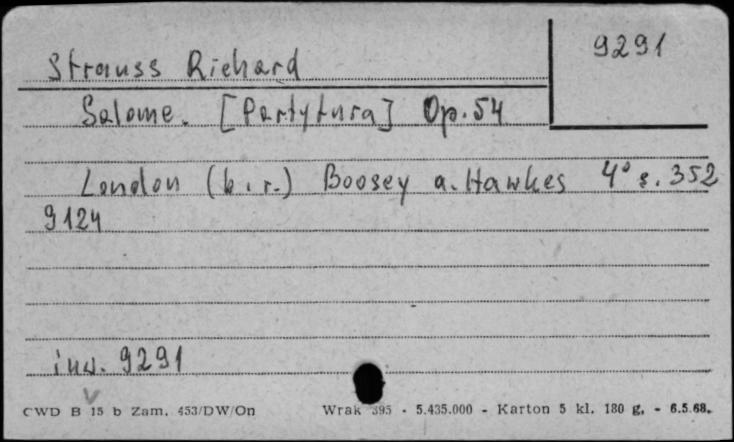 9291
Strauss Richard
Salome. [Partytura] Op. 54
London (b. r.) Boosey a. Hawkes 4° s. 352
9124
inw. 9291
CWD B 15 b Zam. 453/DW/On Wrak 395 - 5.435.000 - Karton 5 kl. 180 g. - 6.5.68.